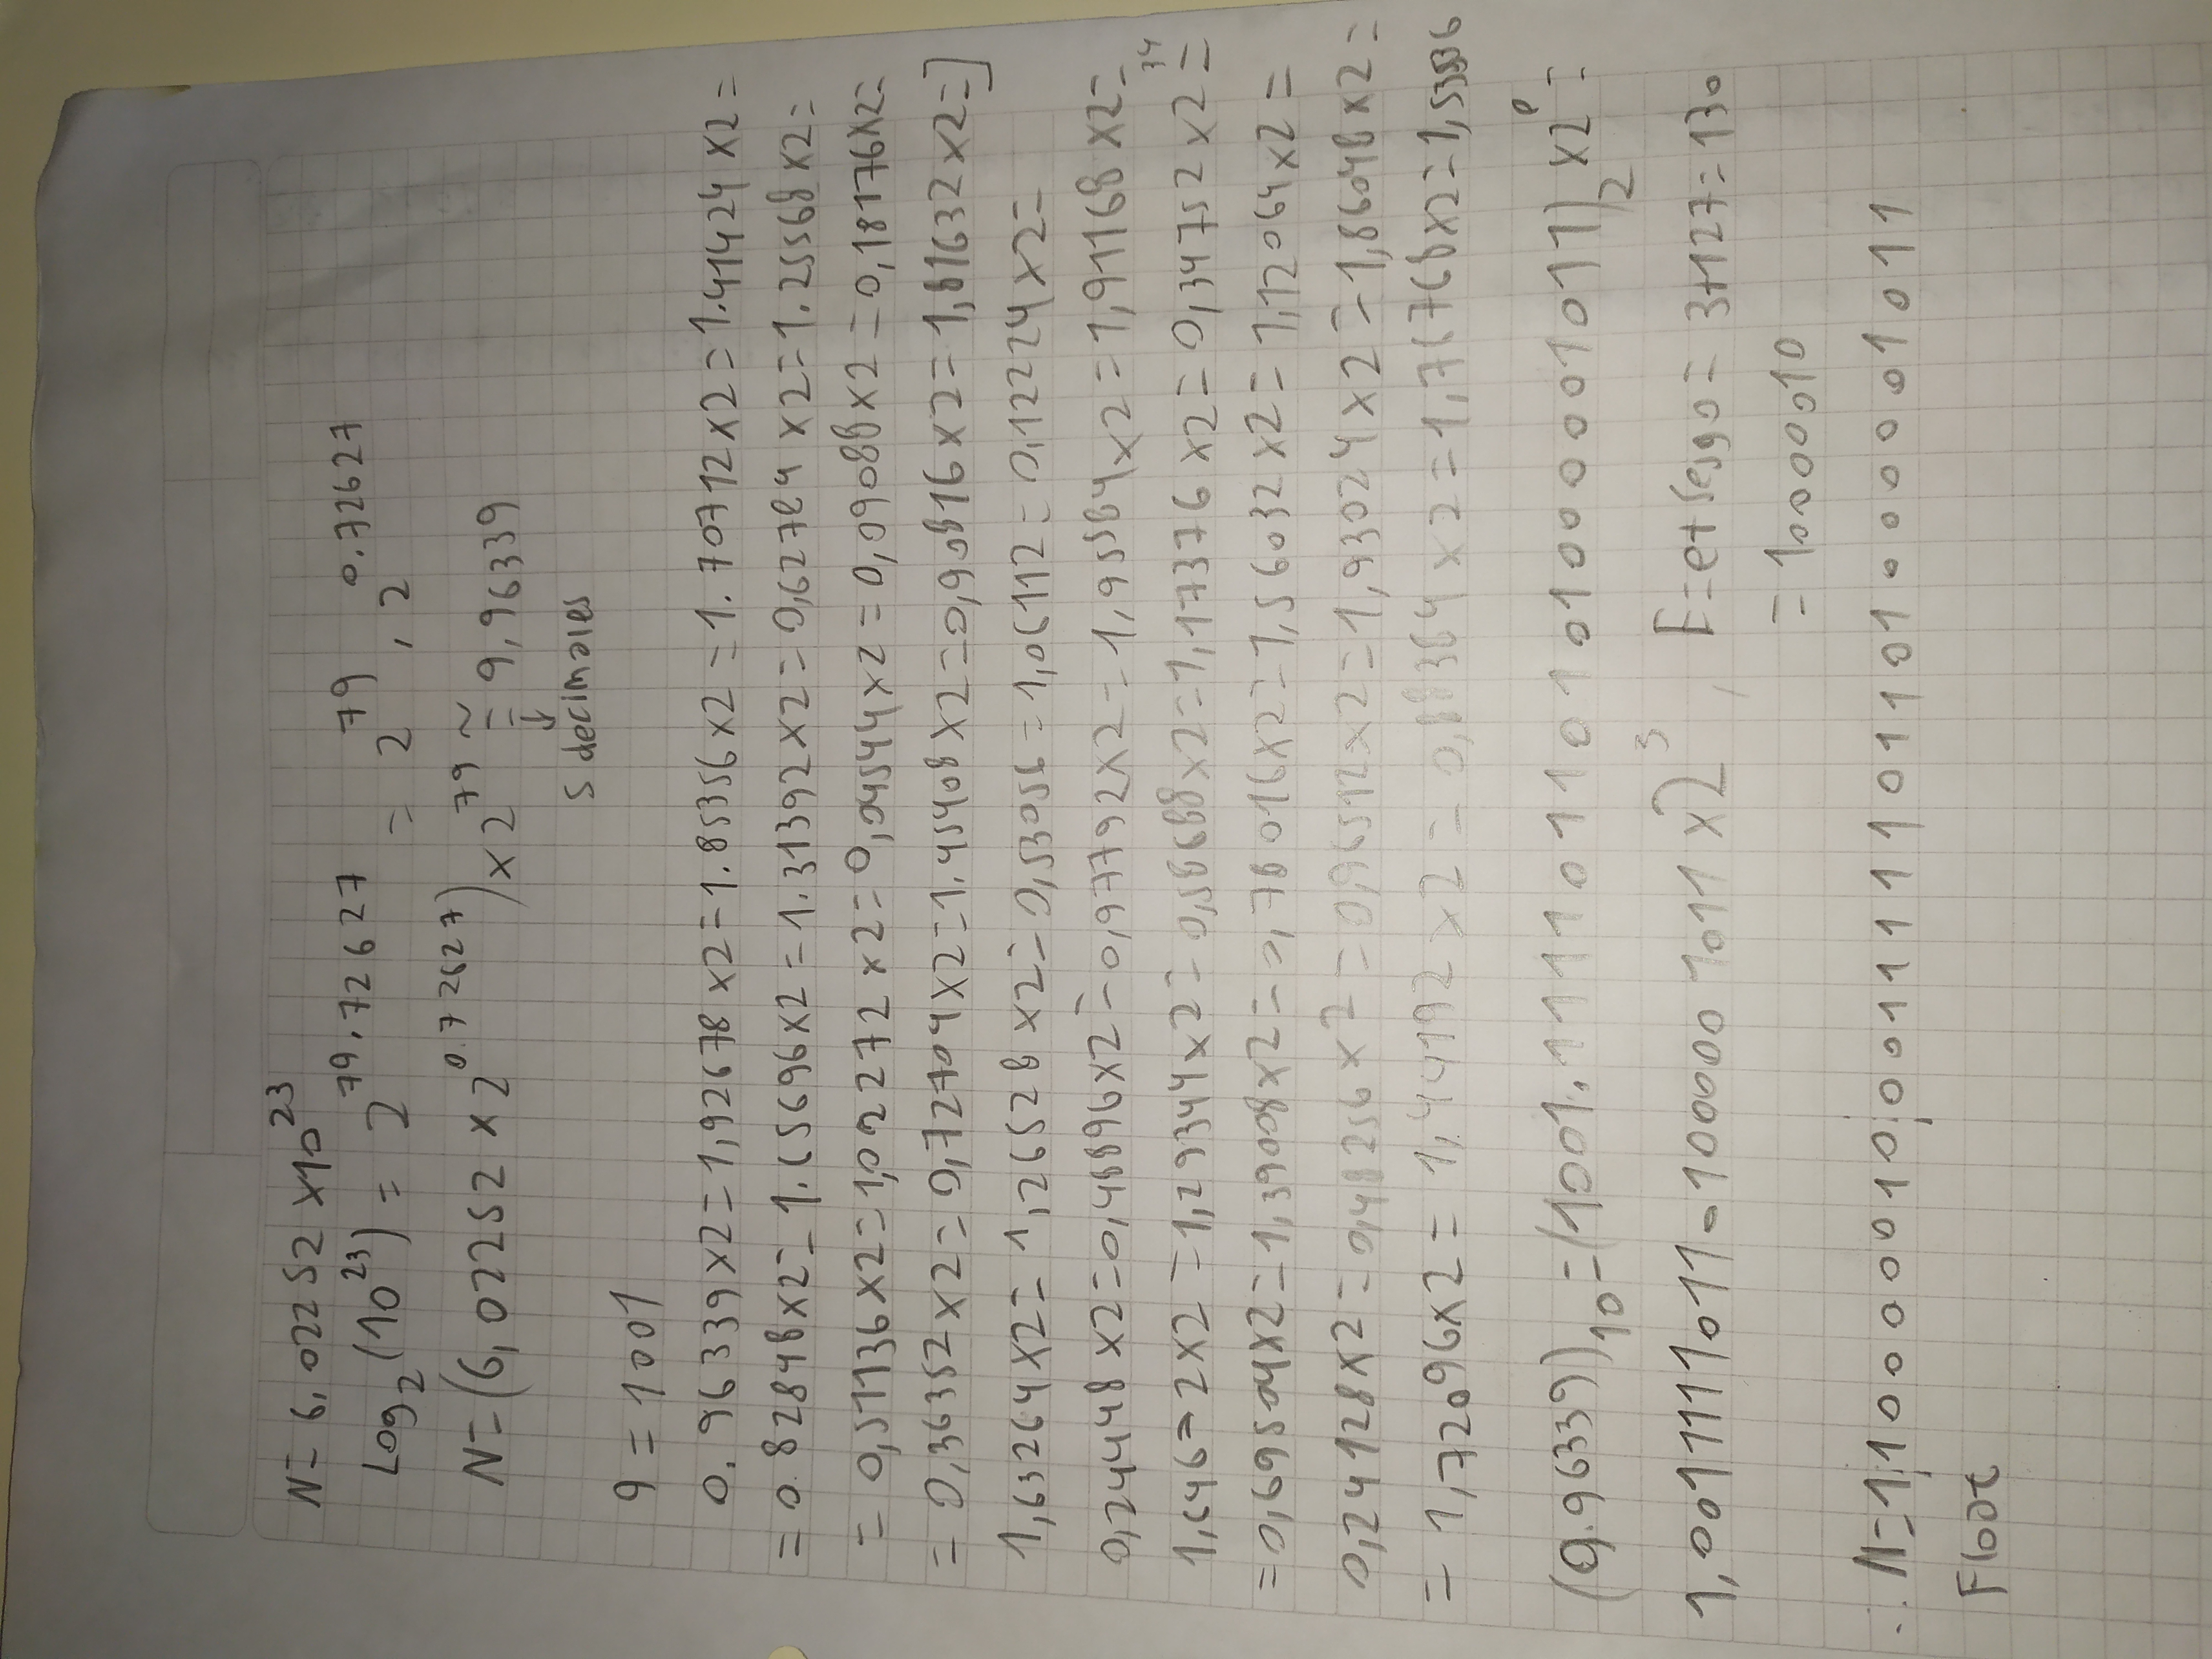 N= 6,02252 ×10^23
Log_2(10^23) = 2^79.72627 = 2^79 . 2^0.72627
N=(6,02252 × 2^0.72627) × 2^79 ≅ 9,96339
↓
5 decimales
9 = 1001
0.96339×2=1,92678×2=1.85356×2=1.70712×2=1.41424×2=
= 0.82848×2=1.65696×2=1.31392×2=0,62784×2=1.25568×2=
= 0,51136×2=1,02272×2=0,04544×2=0,09088×2=0,18176×2=
= 0,36352×2=0,72704×2=1.45408×2=0,90816×2=1,81632×2=]
1,63264×2=1,26528×2=0,53056=1,06112=0,12224×2=
0,24448×2=0,48896×2=0,97792×2=1,95584×2=1,91168×2=
×2=1,29344×2=0,58688×2=1,17376×2=0,34752×2= 34
=0,69504×2=1,39008×2=0,78016×2=1,56032×2=1,12064×2=
0,24128×2=0,48256×2=0,96512×2=1,93024×2=1,86048×2=
= 1,72096×2=1,44192×2=0,88384×2=1,76768×2=1,53536
(9.96339)_10=(1001.11110110101000001011)_2 ×2^0=
1,001111101101000001011 ×2^3 , E=e+Sesgo= 3+127=130
= 10000010
∴ N=1¦10000010¦001111101101000001011
Float